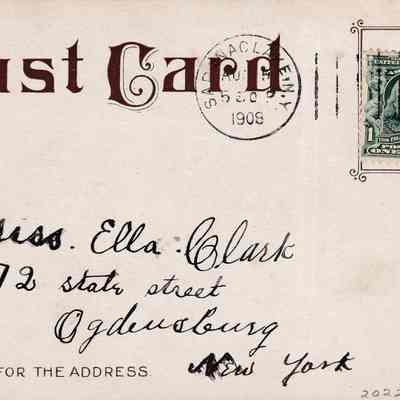 ust Card
SARANAC LAKE N.Y.
AUG
1908
1
iss. Ella Clark
72 state street
Ogdensburg
New York
FOR THE ADDRESS.
2022